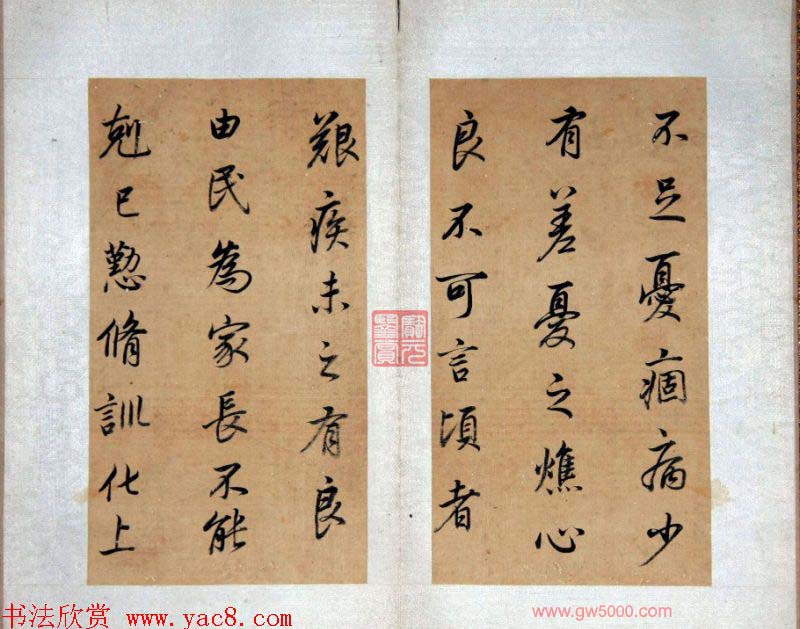 不足憂痼病少
有差憂之燋心
良不可言頃者
艱疾未之有良
由民為家長不能
剋己懃脩訓化上
書法欣赏 www.yac8.com
www.gw5000.com